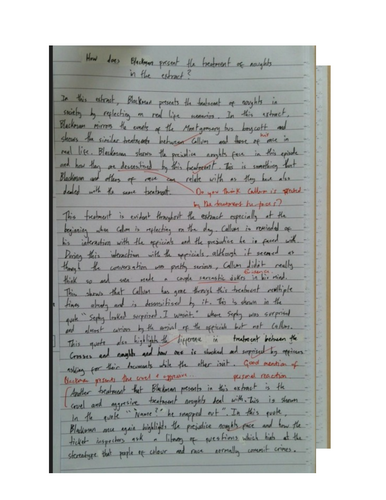 How does Blackman present the treatment of noughts
in the extract?
In this extract, Blackman presents the treatment of noughts in
society by replecting on real life scenarios. In this extract,
Blackman mirrors the events of the Montgomery bus boycott and
shows the similar treatments between Callum and those of once in
real life. Blackman shows the prejudice noughts face in this episode
and how they are desensitised by this treatment. This is something that
Blackman and others of can relate with as they have also
dealt with the same treatment.
Do you think Callum is
by the
This treatment is evident throughout the extract especially at the
beginning when Callum is replecting on the day. Callum is reminded of
his interactions with the opicials and the prejudice he is paced with.
During this interaction with the opicials, although it seemed as
though the conversation was pretty serious, Callum didn't really
think so and even made a couple sarcastic in his mind.
This shows that Callum has gone through this treatment multiple
times already and is desensitised by it. This is shown in the
quote "Sephy looked surprised. I wasn't." where Sephy was surprised
and almost curious by the arrival of the opicials but not Callum.
This quote also highlights the difference in treatment between the
Crosses and noughts and how one is shocked and surprised by opicers
asking for their documents while the other isn't.
Good mention of
personal reaction
Blackman presents the cruel & aggressive
Another treatment that Blackman presents in this extract is the
cruel and aggressive treatment noughts deal with. This is shown
in the quote "'Name?' he snapped out". In this quote,
Blackman once again highlights the prejudice noughts face and how the
ticket inspectors ask a of questions which hints at the
stereotype that people of colour and race normally commit crimes.